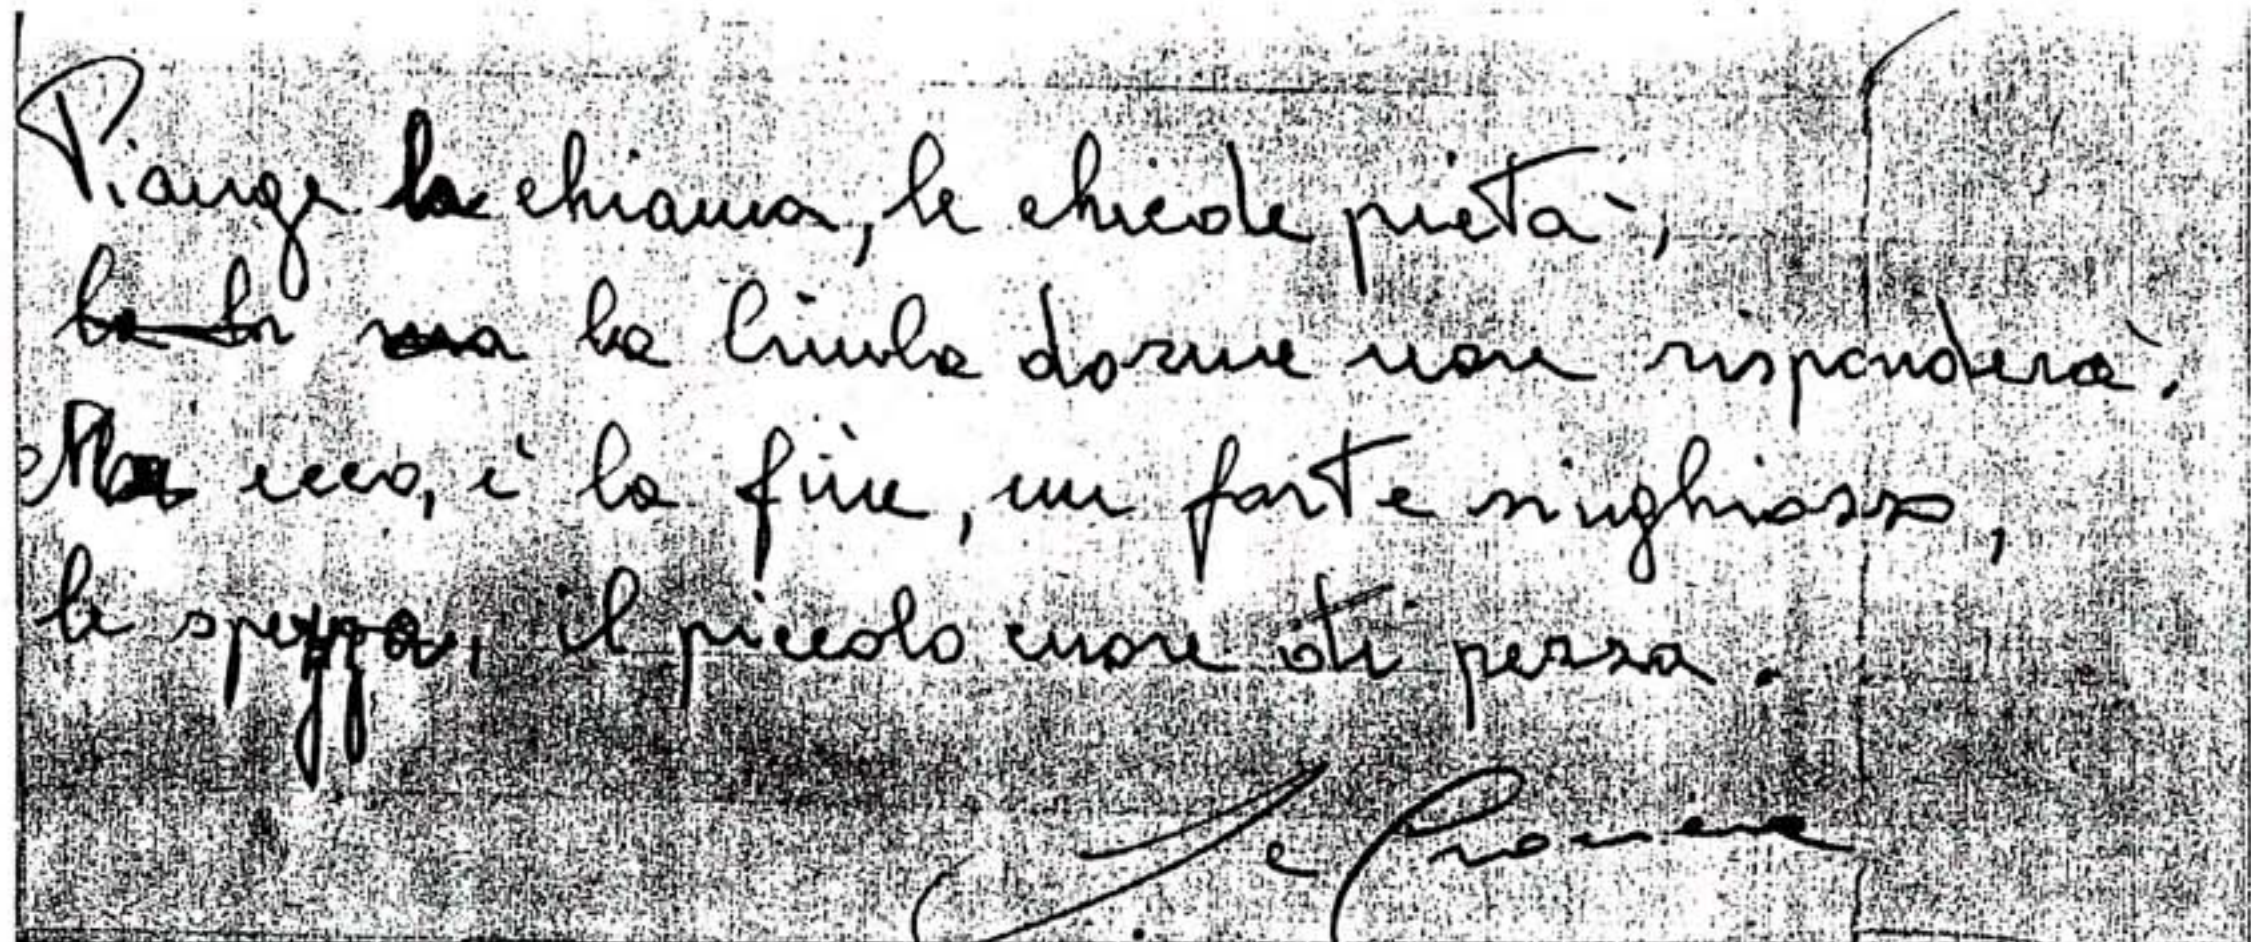 Piange la chiama, le chiede pietà,
ma la bimba dorme non risponderà.
Ma ecco, è la fine, un forte singhiozzo,
le spezza, il piccolo cuore